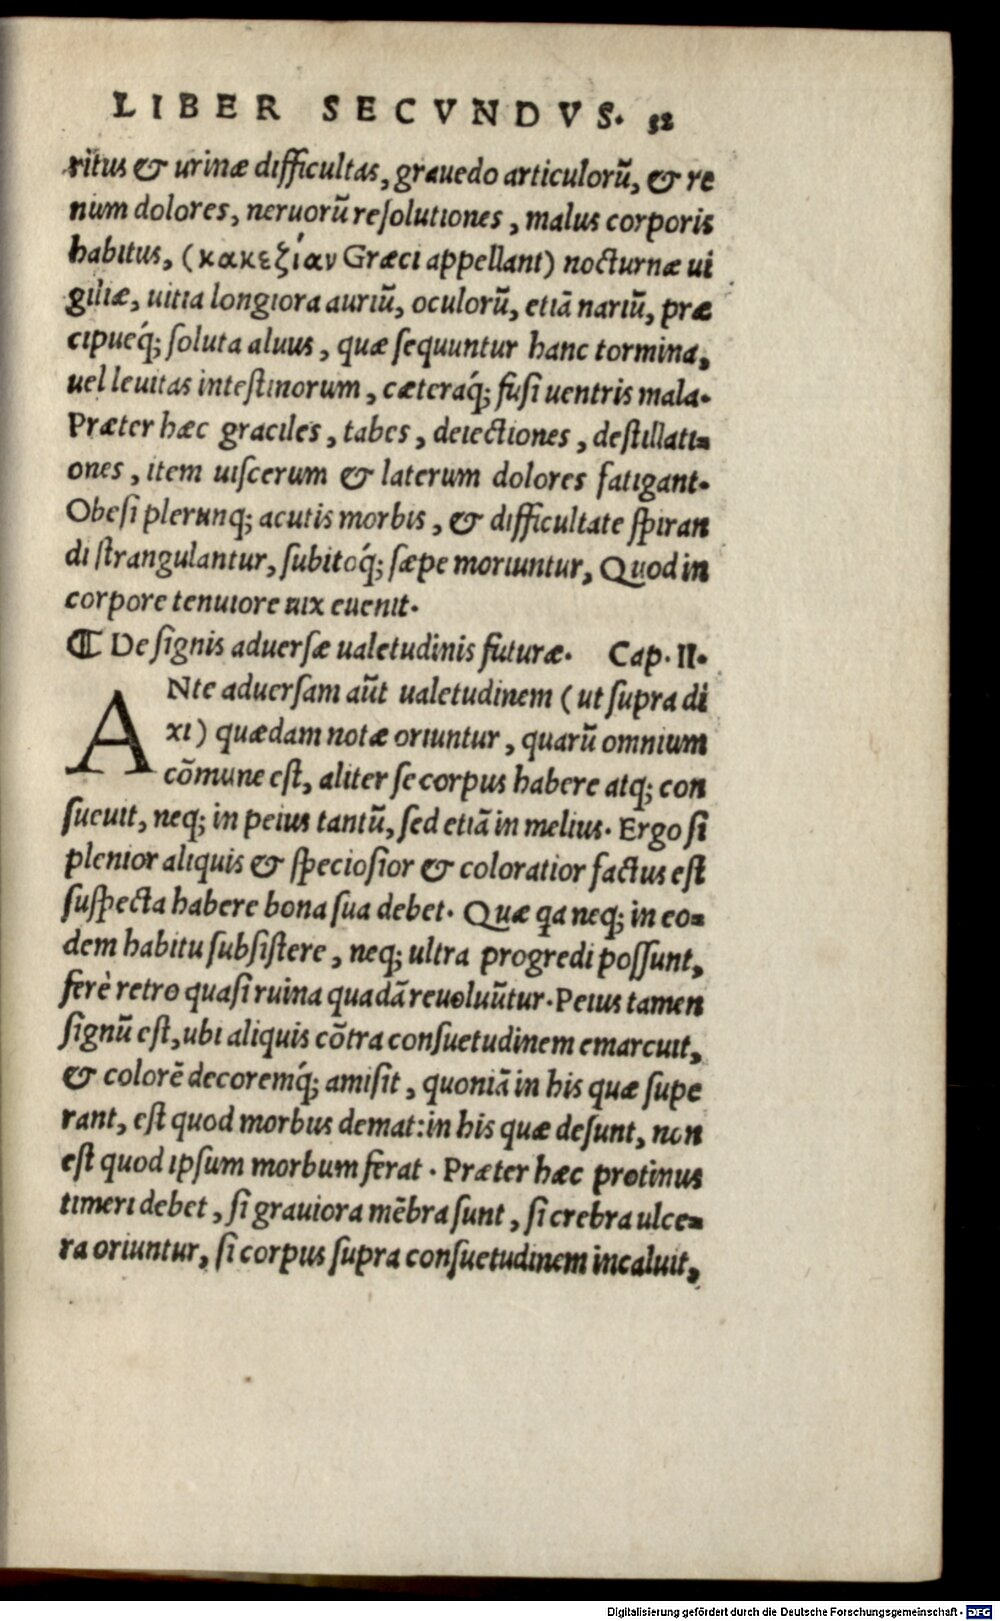 LIBER SECVNDVS. 32
ritus & urinæ difficultas, grauedo articulorũ, & re
num dolores, neruorũ reſolutiones, malus corporis
habitus, (κακεξίαν Græci appellant) nocturnæ ui
giliæ, uitia longiora auriũ, oculorũ, etiã nariũ, præ
cipueq́; ſoluta aluus, quæ ſequuntur hanc tormina,
uel leuitas inteſtinorum, cæteraq́; fuſi uentris mala.
Præter hæc graciles, tabes, deiectiones, deſtillati=
ones, item uiſcerum & laterum dolores fatigant.
Obeſi plerunq; acutis morbis, & difficultate ſpiran
di ſtrangulantur, ſubitoq́; ſæpe moriuntur, Quod in
corpore tenuiore uix euenit.
¶ De ſignis aduerſæ ualetudinis futuræ. Cap. II.
ANte aduerſam aũt ualetudinem (ut ſupra di
xi) quædam notæ oriuntur, quarũ omnium
cõmune eſt, aliter ſe corpus habere atq; con
ſueuit, neq; in peius tantũ, ſed etiã in melius. Ergo ſi
plenior aliquis & ſpecioſior & coloratior factus eſt
ſuſpecta habere bona ſua debet. Quæ qa neq; in eo=
dem habitu ſubſiſtere, neq; ultra progredi poſſunt,
ferè retro quaſi ruina quadã reuoluũtur. Peius tamen
ſignũ eſt, ubi aliquis cõtra conſuetudinem emarcuit,
& colorẽ decoremq́; amiſit, quoniã in his quæ ſupe
rant, eſt quod morbus demat: in his quæ deſunt, non
eſt quod ipſum morbum ferat. Præter hæc protinus
timeri debet, ſi grauiora mẽbra ſunt, ſi crebra ulce=
ra oriuntur, ſi corpus ſupra conſuetudinem incaluit,
Digitalisierung gefördert durch die Deutsche Forschungsgemeinschaft - DFG